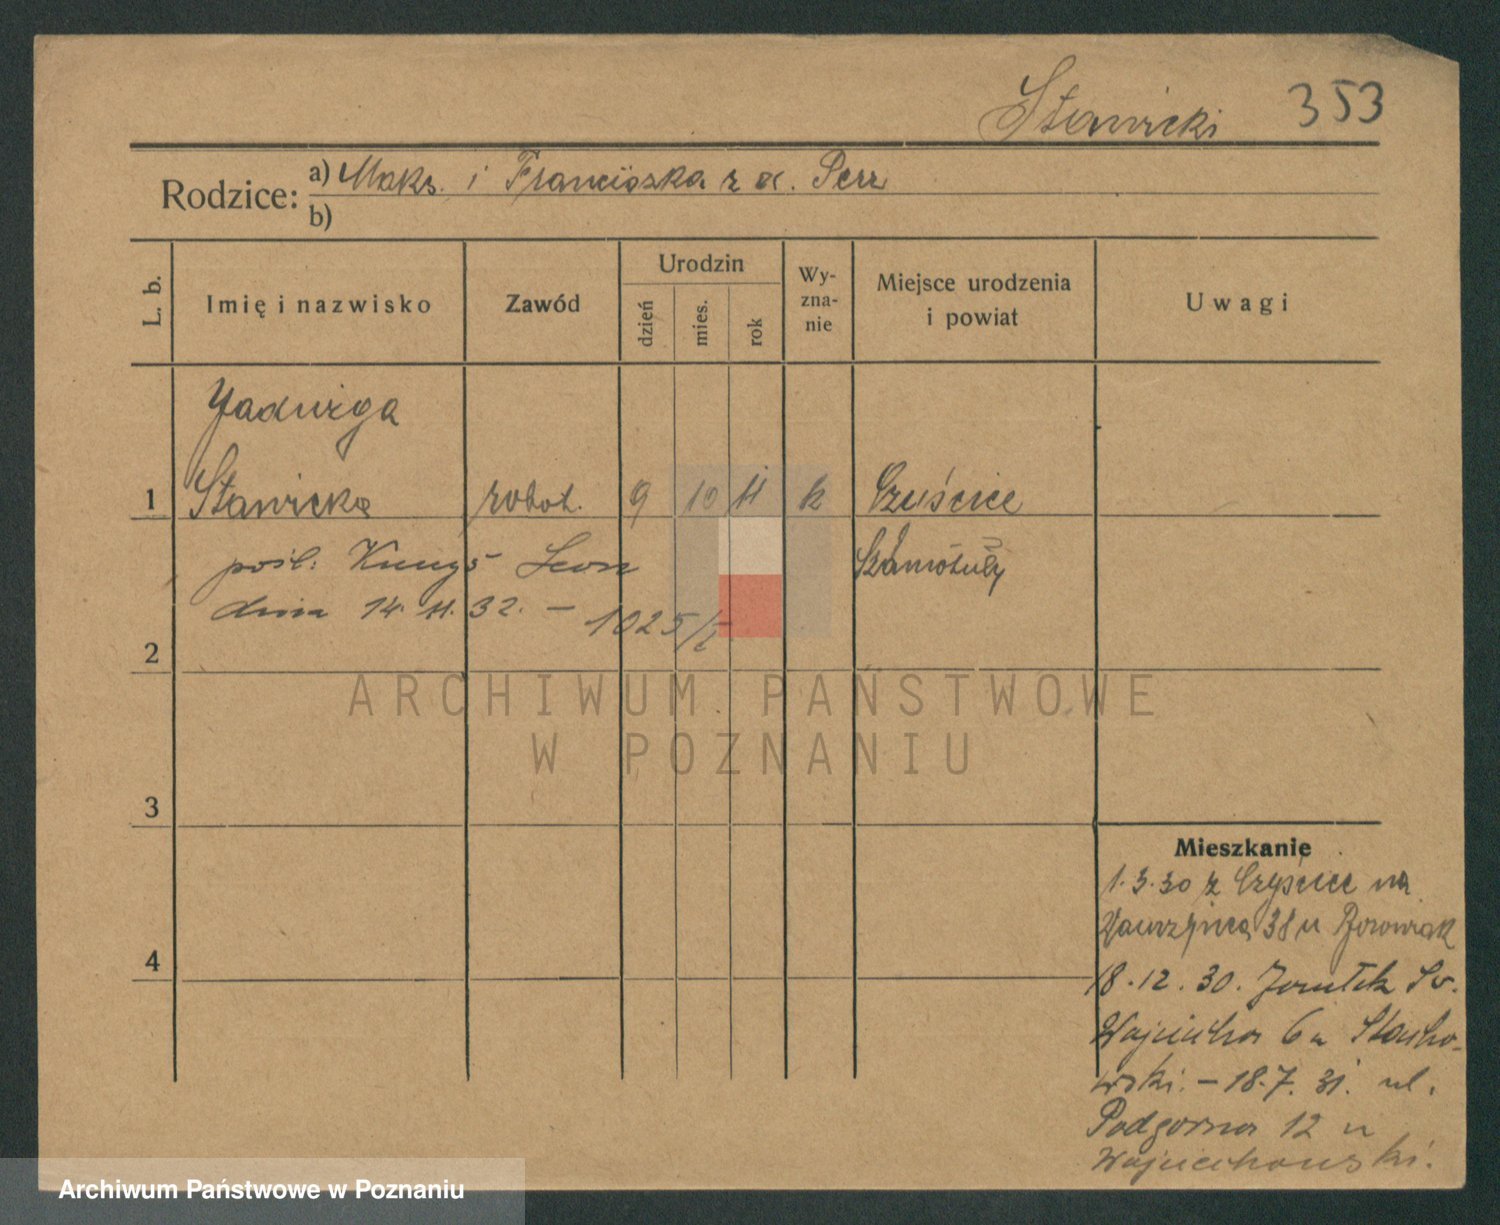 Stawicki 353
Rodzice: a) Maks. i Franciszka z d. Perz
b)
L. b. Imię i nazwisko Zawód Urodzin dzień mies. rok Wy-zna-nie Miejsce urodzenia i powiat Uwagi
Jadwiga
1 Stawicka robot. 9 10 11 k Cześcice
pośl: Leon Szamotuły
dnia 14.11.32. – 1025/
2
ARCHIWUM PAŃSTWOWE
W POZNANIU
3
Mieszkanie
1.3.30 z Czyścice na
Wawrzyńca 38 u Borowiak
4
18.12.30. Św.
Wojciecha 6 u Stacho-
wski. – 18.7.31. ul.
Podgórna 12 u
Wojciechowski.
Archiwum Państwowe w Poznaniu